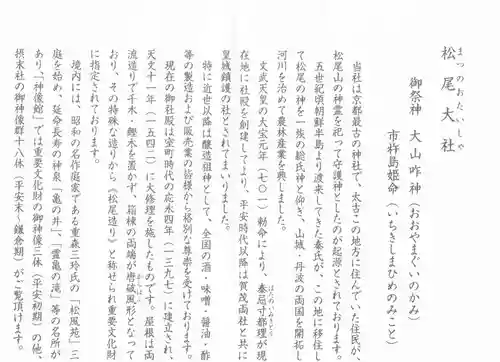 まつのおたいしゃ
松尾大社
御祭神　大山咋神（おおやまぐいのかみ）
市杵島姫命（いちきしまひめのみこと）
当社は京都最古の神社で、太古この地方に住んでいた住民が、
松尾山の神霊を祀って守護神としたのが起源とされております。
五世紀頃朝鮮半島より渡来してきた秦氏が、この地に移住し
て松尾の神を一族の総氏神と仰ぎ、山城・丹波の両国を開拓し
河川を治めて農林産業を興しました。
文武天皇の大宝元年（七〇一）勅命により、秦忌寸都理が現
はたのいみきとり
在地に社殿を創建してより、平安時代以降は賀茂両社と共に
皇城鎮護の社とされてまいりました。
特に近世以降は醸造祖神として、全国の酒・味噌・醤油・酢
等の製造および販売業の皆様から格別な尊崇を受けております。
現在の御社殿は室町時代の応永四年（一三九七）に建立され、
天文十一年（一五四二）に大修理を施したものです。屋根は両
流造りで千木・鰹木を置かず、箱棟の両端が唐破風形となって
おり、その特殊な造りから《松尾造り》と称せられ重要文化財
に指定されております。
境内には、昭和の名作庭家である重森三玲氏の「松風苑」三
庭を始め、延命長寿の神泉「亀の井」、「霊亀の滝」等の名所が
あり「神像館」では重要文化財の御神像三体（平安初期）の他、
摂末社の御神像群十八体（平安末～鎌倉期）がご覧頂けます。